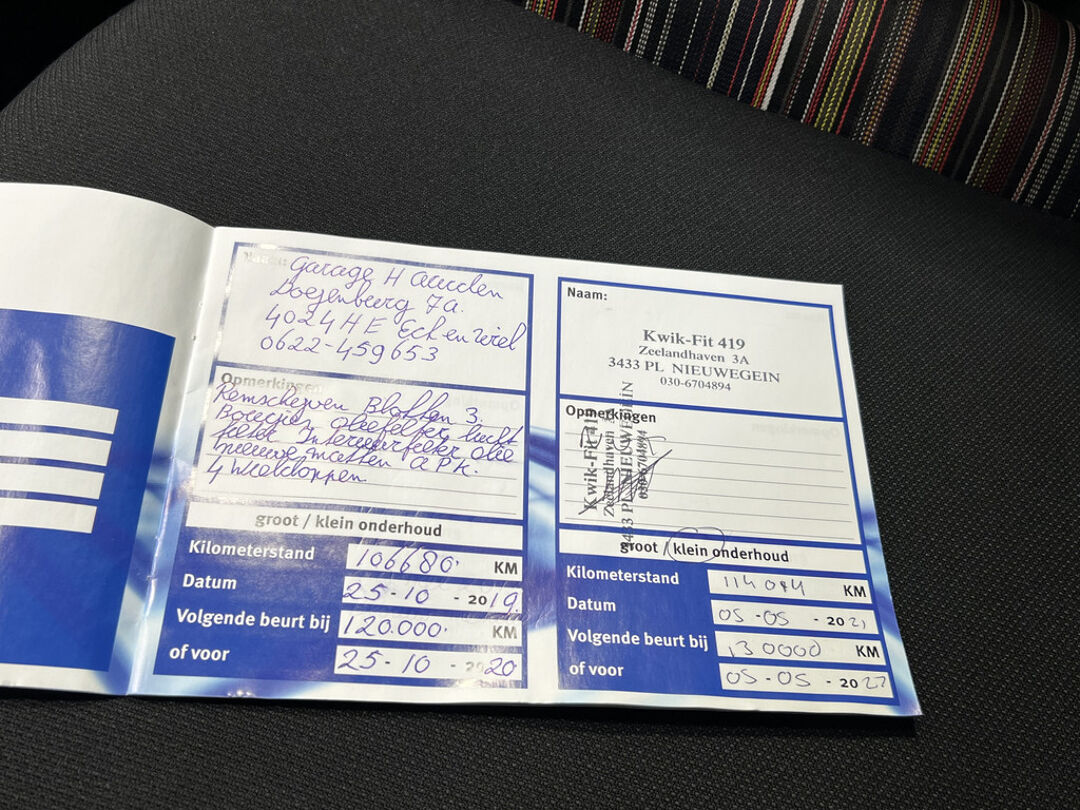 Naam:
Garage H Aauden
Doejenburg 7a.
4024HE Eck en Wiel
0622-459653
Opmerkingen
Remschijven Blokken 3.
Boegjes oliefelter lucht
felter Interieurfelter olie
nieuwe matten APK.
4 wieldoppen
groot / klein onderhoud
Kilometerstand 106680. KM
Datum 25-10 - 2019.
Volgende beurt bij 120.000. KM
of voor 25-10 - 2020
Naam:
Kwik-Fit 419
Zeelandhaven 3A
3433 PL NIEUWEGEIN
030-6704894
Opmerkingen
Kwik-Fit 419
Zeelandhaven 3A
3433 PL NIEUWEGEIN
030-6704894
groot / klein onderhoud
Kilometerstand 114094 KM
Datum 05-05 - 2021
Volgende beurt bij 130000 KM
of voor 05-05 - 2022